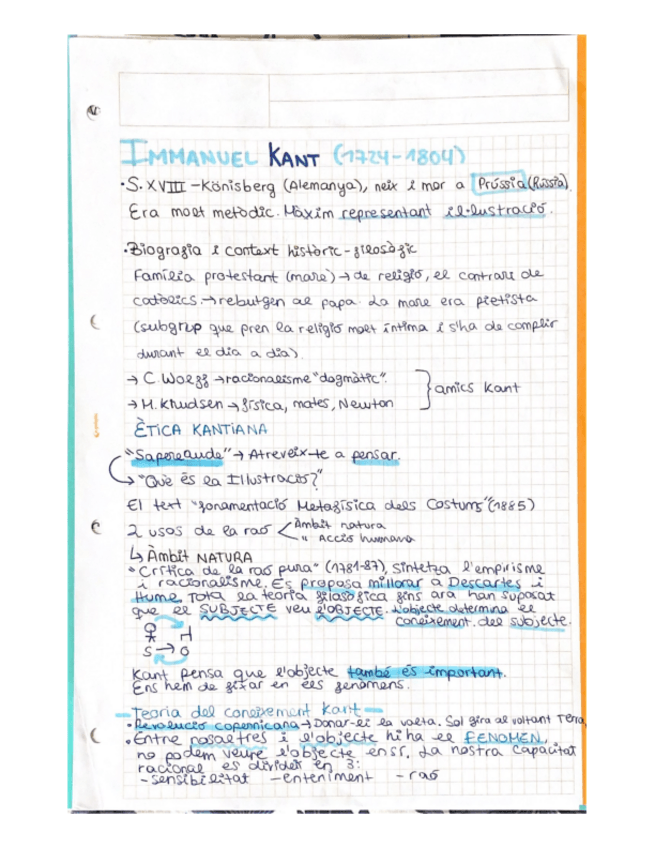 IMMANUEL KANT (1724-1804)
·S. XVIII-Könisberg (Alemanya), neix i mor a Prússia (Rússia)
Era molt metòdic. Màxim representant il·lustració.
·Biografia i context històric-filosòfic
Família protestant (mare) → de religió, el contrari de
catòlics. → rebutgen al papa. La mare era pietista
(subgrup que pren la religió molt íntima i s'ha de complir
durant el dia a dia)
→ C. Wolff → racionalisme "dogmàtic".
→ M. Knudsen → física, mates, Newton
amics Kant
ÈTICA KANTIANA
"Sapere aude" → Atreveix-te a pensar.
"Què és la Il·lustració?"
El text "fonamentació Metafísica dels Costums" (1885)
2 usos de la raó < Àmbit natura
" Acció humana
↳ Àmbit NATURA
• "Crítica de la raó pura" (1781-87), sintetza l'empirisme
i racionalisme. Es proposa millorar a Descartes i
Hume. Tota la teoria filosòfica fins ara han suposat
que el SUBJECTE veu l'OBJECTE. L'objecte determina el
coneixement del subjecte.
S → O
Kant pensa que l'objecte també és important.
Ens hem de fixar en els fenòmens.
- Teoria del coneixement Kant -
• Revolució copernicana → Donar-li la volta. Sol gira al voltant Terra
• Entre nosaltres i l'objecte hi ha el FENOMEN,
no podem veure l'objecte en si. La nostra capacitat
racional es divideix en 3:
- sensibilitat - enteniment - raó